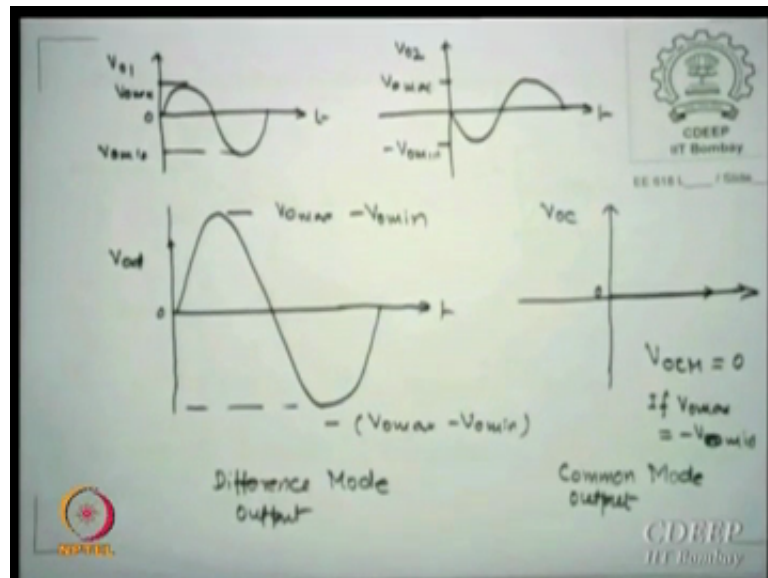 Vo1
Vomax
0
Vomin
t
Vo2
Vomax
-Vomin
t
CDEEP
IIT Bombay
EE 618 L____ / Slide____
Vout
0
Vomax - Vomin
t
- (Vomax - Vomin)
Voc
0
VOCM = 0
If Vomax
= -Vomin
Difference Mode
output
Common Mode
output
NPTEL
CDEEP
IIT Bombay